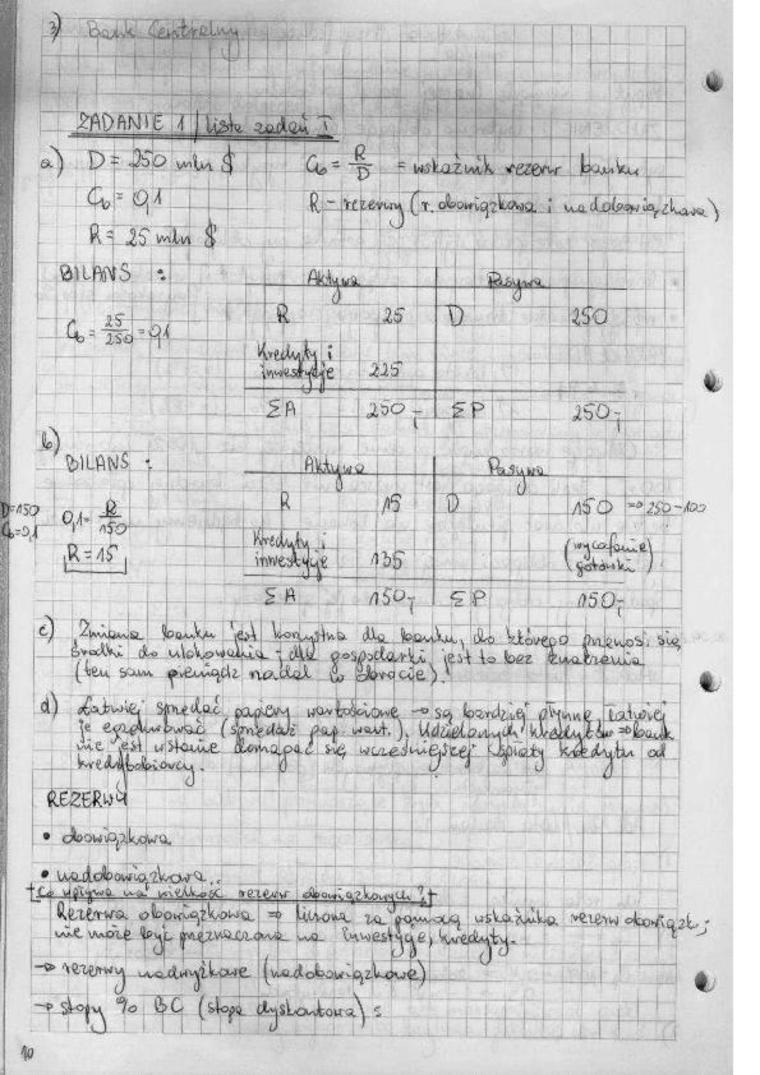 3) Bank Centralny
ZADANIE 1 / lista zadań I
a) D = 250 mln $ Cb = R/D = wskaźnik rezerw banku
Cb = 0,1 R - rezerwy (r. obowiązkowa i nadobowiązkowa)
R = 25 mln $
BILANS :
Aktywa Pasywa
Cb = 25/250 = 0,1
R 25 D 250
Kredyty i
inwestycje 225
ΣA 250,- ΣP 250,-
b)
BILANS :
Aktywa Pasywa
D=150
Cb=0,1
0,1 = R/150
R = 15
R 15 D 150 => 250-100
Kredyty i (wycofanie)
inwestycje 135 gotówki
ΣA 150,- ΣP 150,-
c) Zmiana banku jest korzystna dla banku, do którego przenosi się
środki do ulokowania; dla gospodarki jest to bez znaczenia
(ten sam pieniądz nadal w obrocie).
d) Łatwiej sprzedać papiery wartościowe → są bardziej płynne, łatwiej
je (sprzedaż pap. wart.). Udzielonych kredytów => bank
nie jest wstanie domagać się wcześniejszej spłaty kredytu od
kredytobiorcy.
REZERWY
• obowiązkowa
• nadobowiązkowa
+ Co wpływa na wielkość rezerw obowiązkowych? +
Rezerwa obowiązkowa => liczona za pomocą wskaźnika rezerw obowiązk.;
nie może być przeznaczona na inwestycje, kredyty.
→ rezerwy nadwyżkowe (nadobowiązkowe)
→ stopy % BC (stopa dyskontowa) s
10